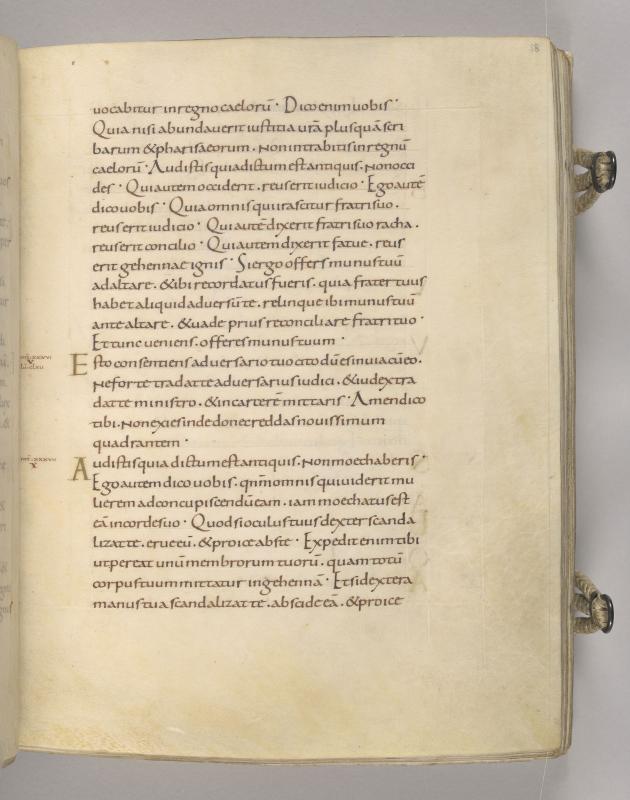 38
uocabitur in regno caelorū · Dico enim uobis ·
Quia nisi abundauerit iustitia urā plus quā scri
barum & pharisaeorum . Non intrabitis in regnū
caelorū · Audistis quia dictum est antiquis . Non occi
des · Qui autem occiderit . reus erit iudicio · Ego autē
dico uobis · Quia omnis qui irascitur fratri suo .
reus erit iudicio · Qui autē dixerit fratri suo racha .
reus erit concilio · Qui autem dixerit fatue . reus
erit gehennae ignis · Si ergo offers munus tuū
ad altare . & ibi recordatus fueris . quia frater tuus
habet aliquid aduersū te . relinque ibi munus tuū
ante altare . & uade prius reconciliare fratri tuo ·
Et tunc ueniens . offeres munus tuum ·
Esto consentiens aduersario tuo cito dū es in uia cū eo .
Ne forte tradat te aduersarius iudici . & iudex tra
dat te ministro . & in carcerē mittaris · Amen dico
tibi . Non exies inde donec reddas nouissimum
quadrantem ·
Audistis quia dictum est antiquis . Non moechaberis ·
Ego autem dico uobis . qnm̄ omnis qui uiderit mu
lierem ad concupiscendū eam . iam moechatus est
eā in corde suo · Quod si oculus tuus dexter scanda
lizat te . erue eū . & proice abs te · Expedit enim tibi
ut pereat unū membrorum tuorū . quam totū
corpus tuum mittatur in gehennā · Et si dextera
manus tua scandalizat te . abscide eā . & proice